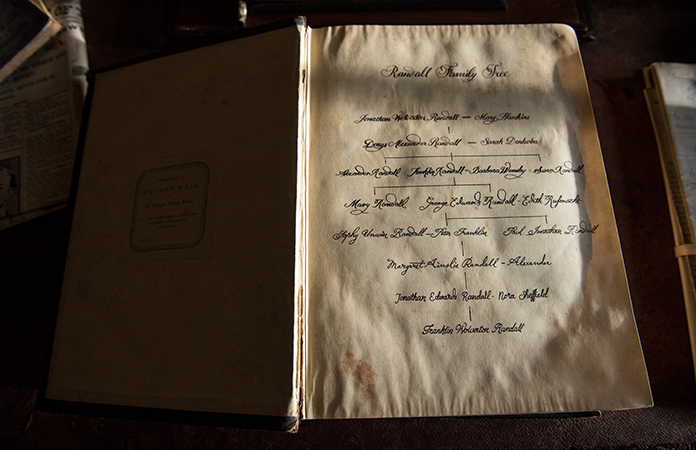 Randall Family Tree
Jonathan Wolverton Randall — Mary Hawkins
Denys Alexander Randall — Sarah Denholm
Alexander Randall Randall - Barbara Randall
Mary Randall George Edwards Randall - Edith
Randall - Franklin Paul Jonathan Randall
Margaret Ainslie Randell - Alexander
Jonathan Edwards Randall - Nora Sheffield
Franklin Wolverton Randall